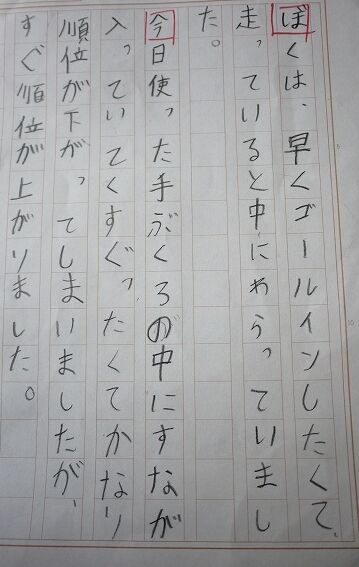 ぼくは、早くゴールインしたくて、
走っていると中にわらっていまし
た。
今日使った手ぶくろの中にすなが
入っていてくすぐったくてかなり
順位が下がってしまいましたが、
すぐ順位が上がりました。